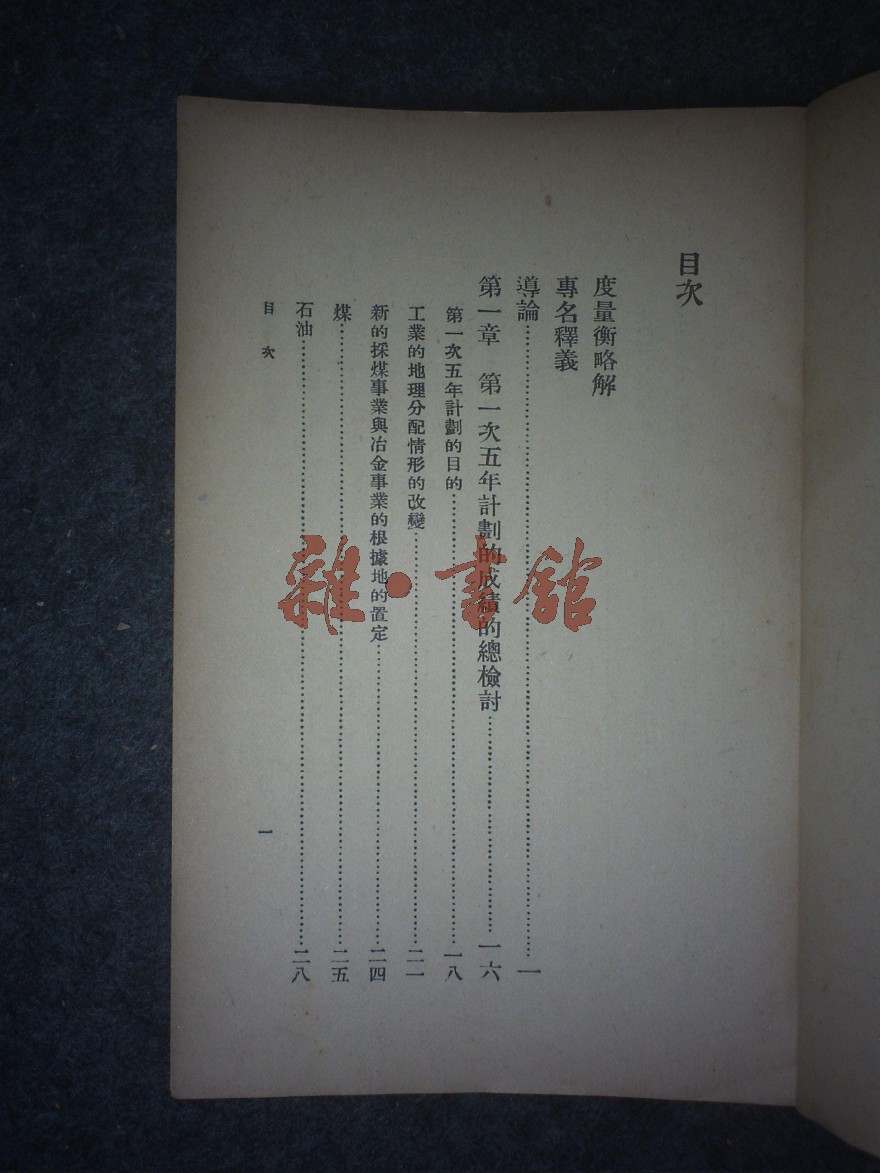 目次
度量衡略解
專名釋義
導論……一
第一章　第一次五年計劃的成績的總檢討……一六
第一次五年計劃的目的……一八
工業的地理分配情形的改變……二一
新的採煤事業與冶金事業的根據地的置定……二四
煤……二五
石油……二八
目　次
一
雜·書館